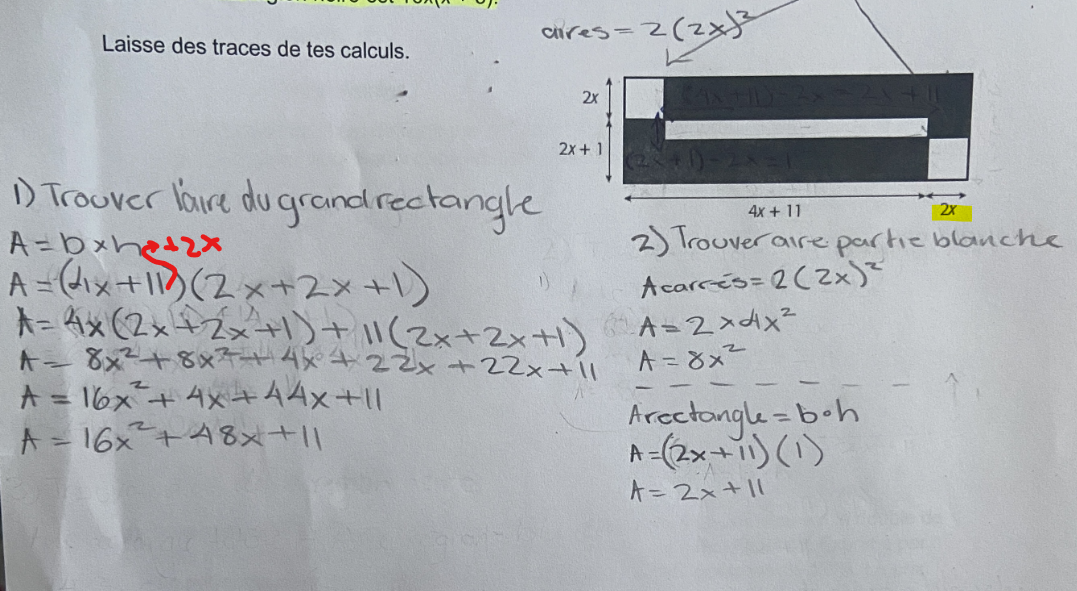 Laisse des traces de tes calculs.
aires = 2(2x)²
2x
2x + 1
(4x+11)-2x = 2x+11
(2x+1)-2x=1
4x + 11
2x
1) Trouver l'aire du grand rectangle
A = b x h +2x
A = (4x+11)(2x+2x+1)
A = 4x(2x+2x+1) + 11(2x+2x+1)
A = 8x² + 8x² + 4x + 22x + 22x + 11
A = 16x² + 4x + 44x + 11
A = 16x² + 48x + 11
2) Trouver aire partie blanche
Acarrés = 2(2x)²
A = 2 x 4x²
A = 8x²
Arectangle = b•h
A = (2x+11)(1)
A = 2x+11